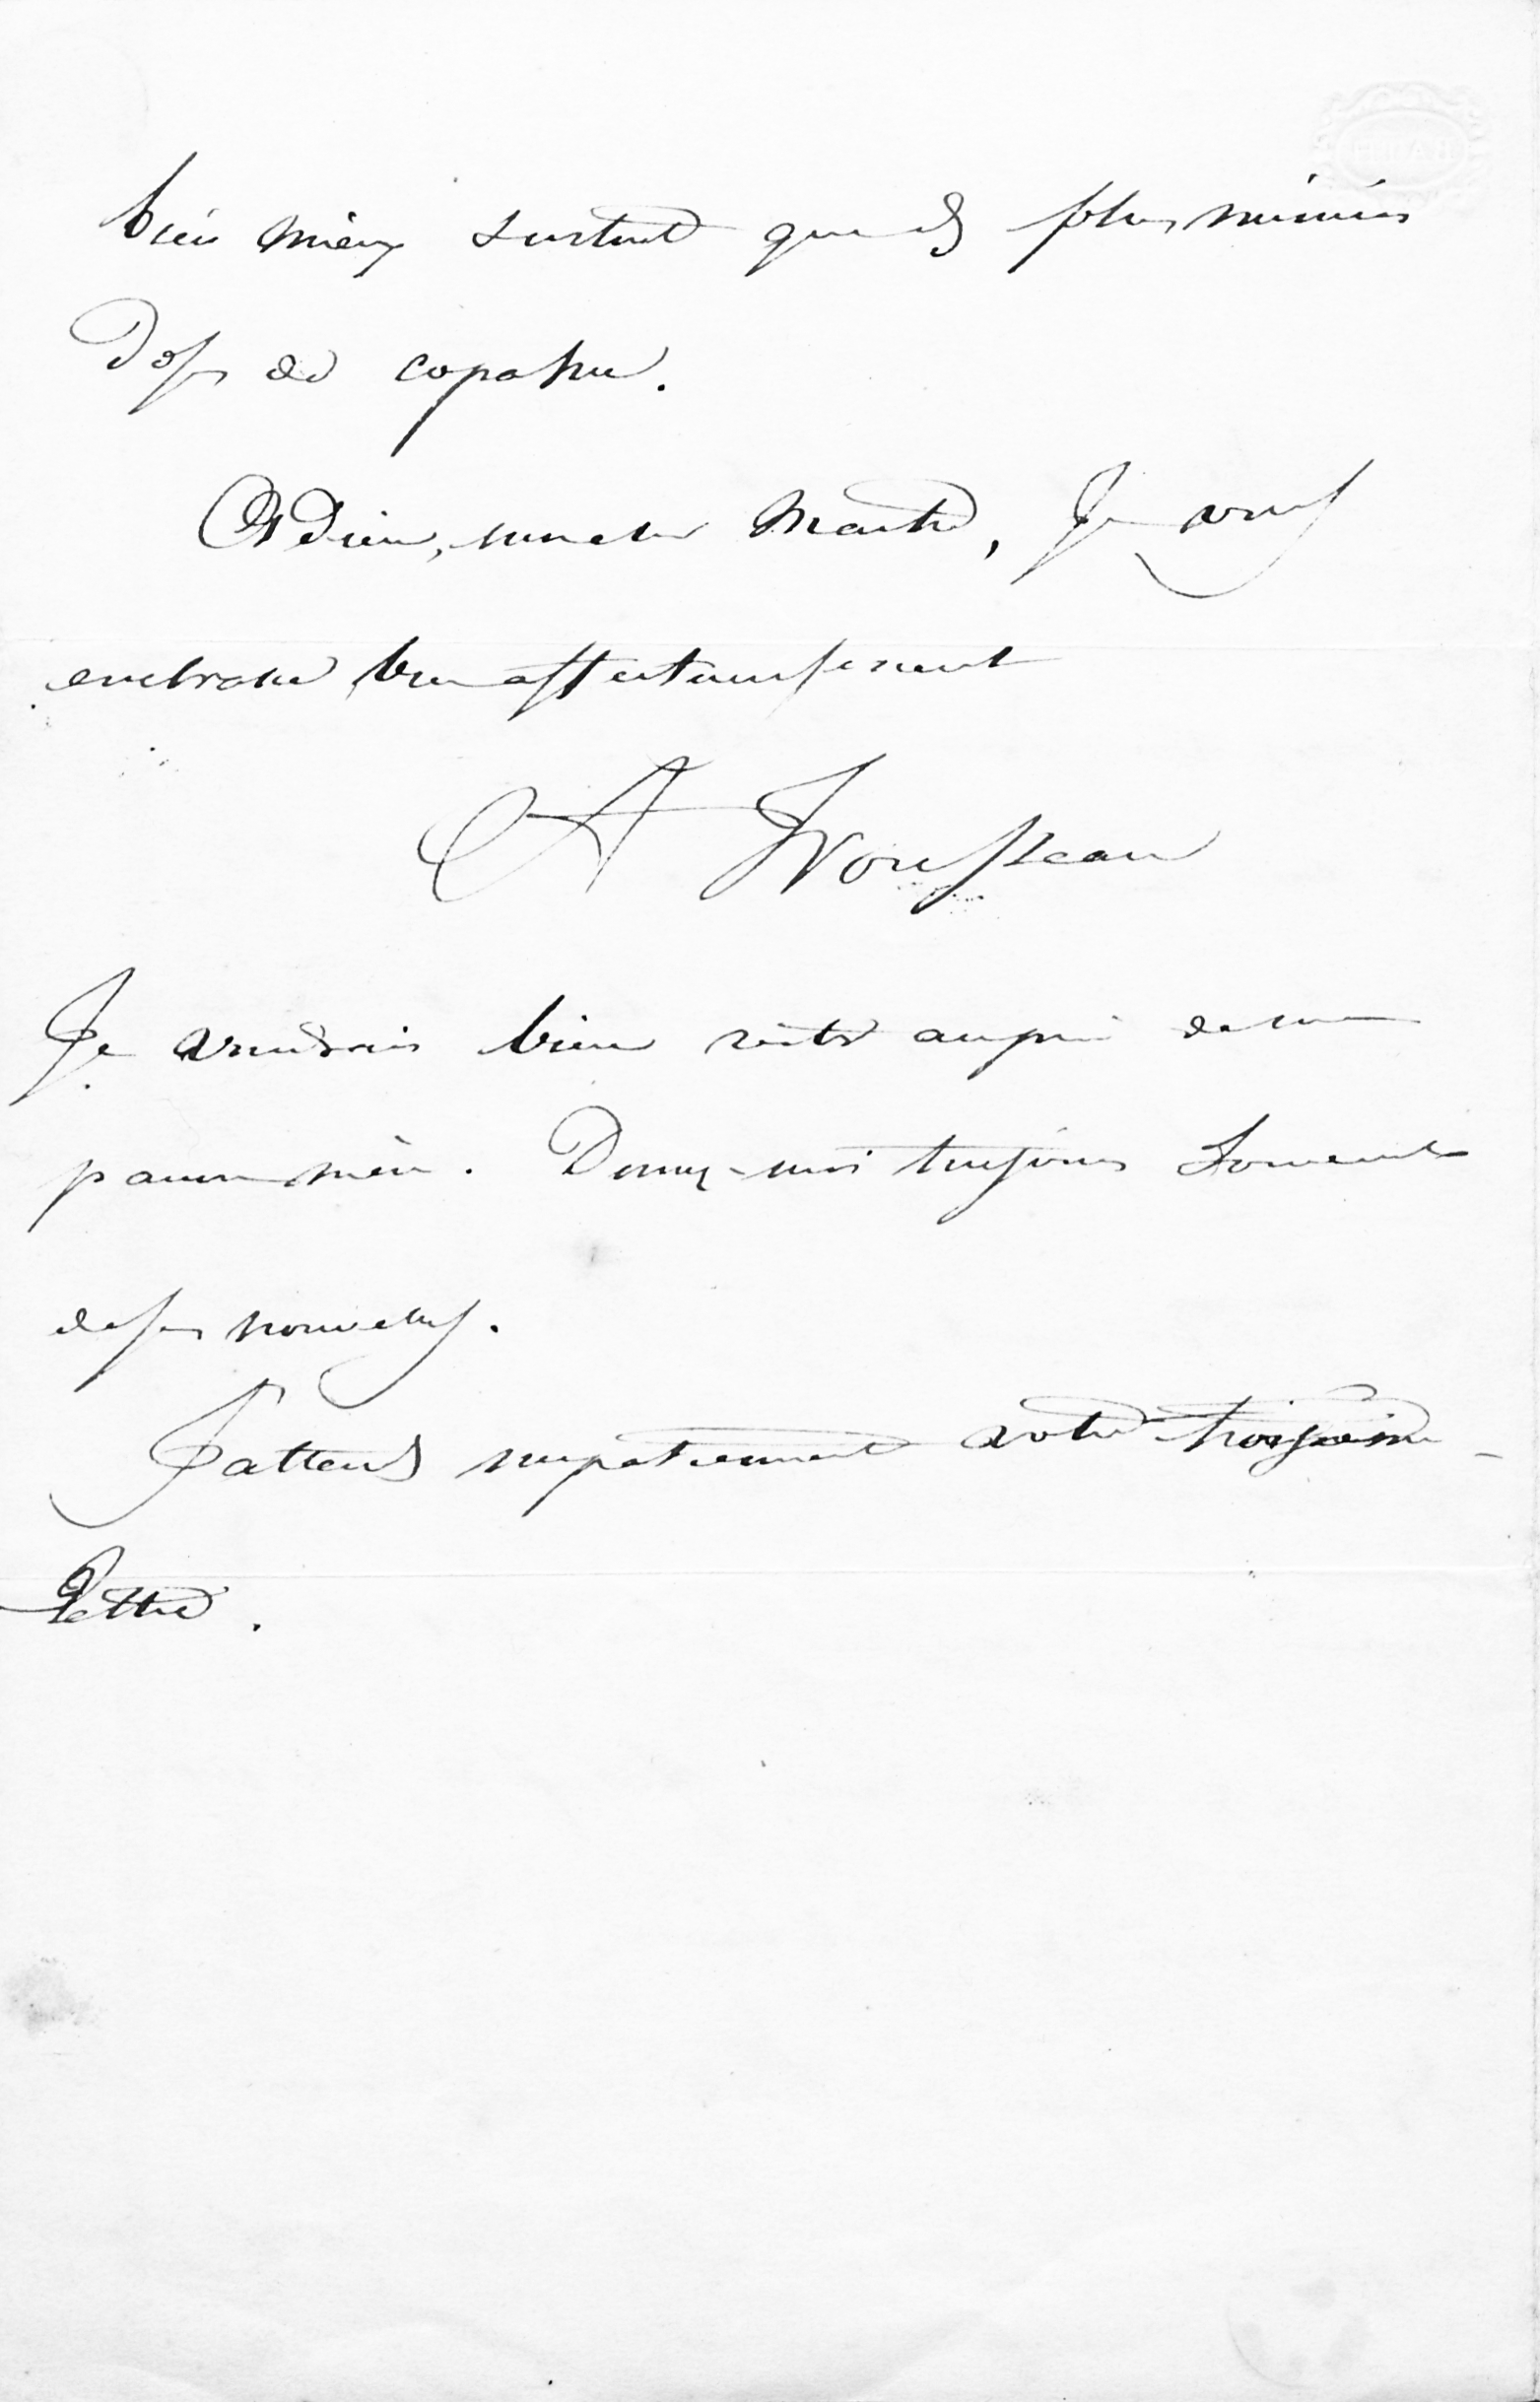 bien mieux surtout quand plus minimes
doses de copahu.
Adieu, mon cher Maître, Je vous
embrasse bien affectueusement
A Trousseau
Je voudrais bien être auprès de ma
pauvre mère. Donnez-moi toujours souvent
de ses nouvelles.
J'attends impatiemment votre troisième
lettre.
BATH